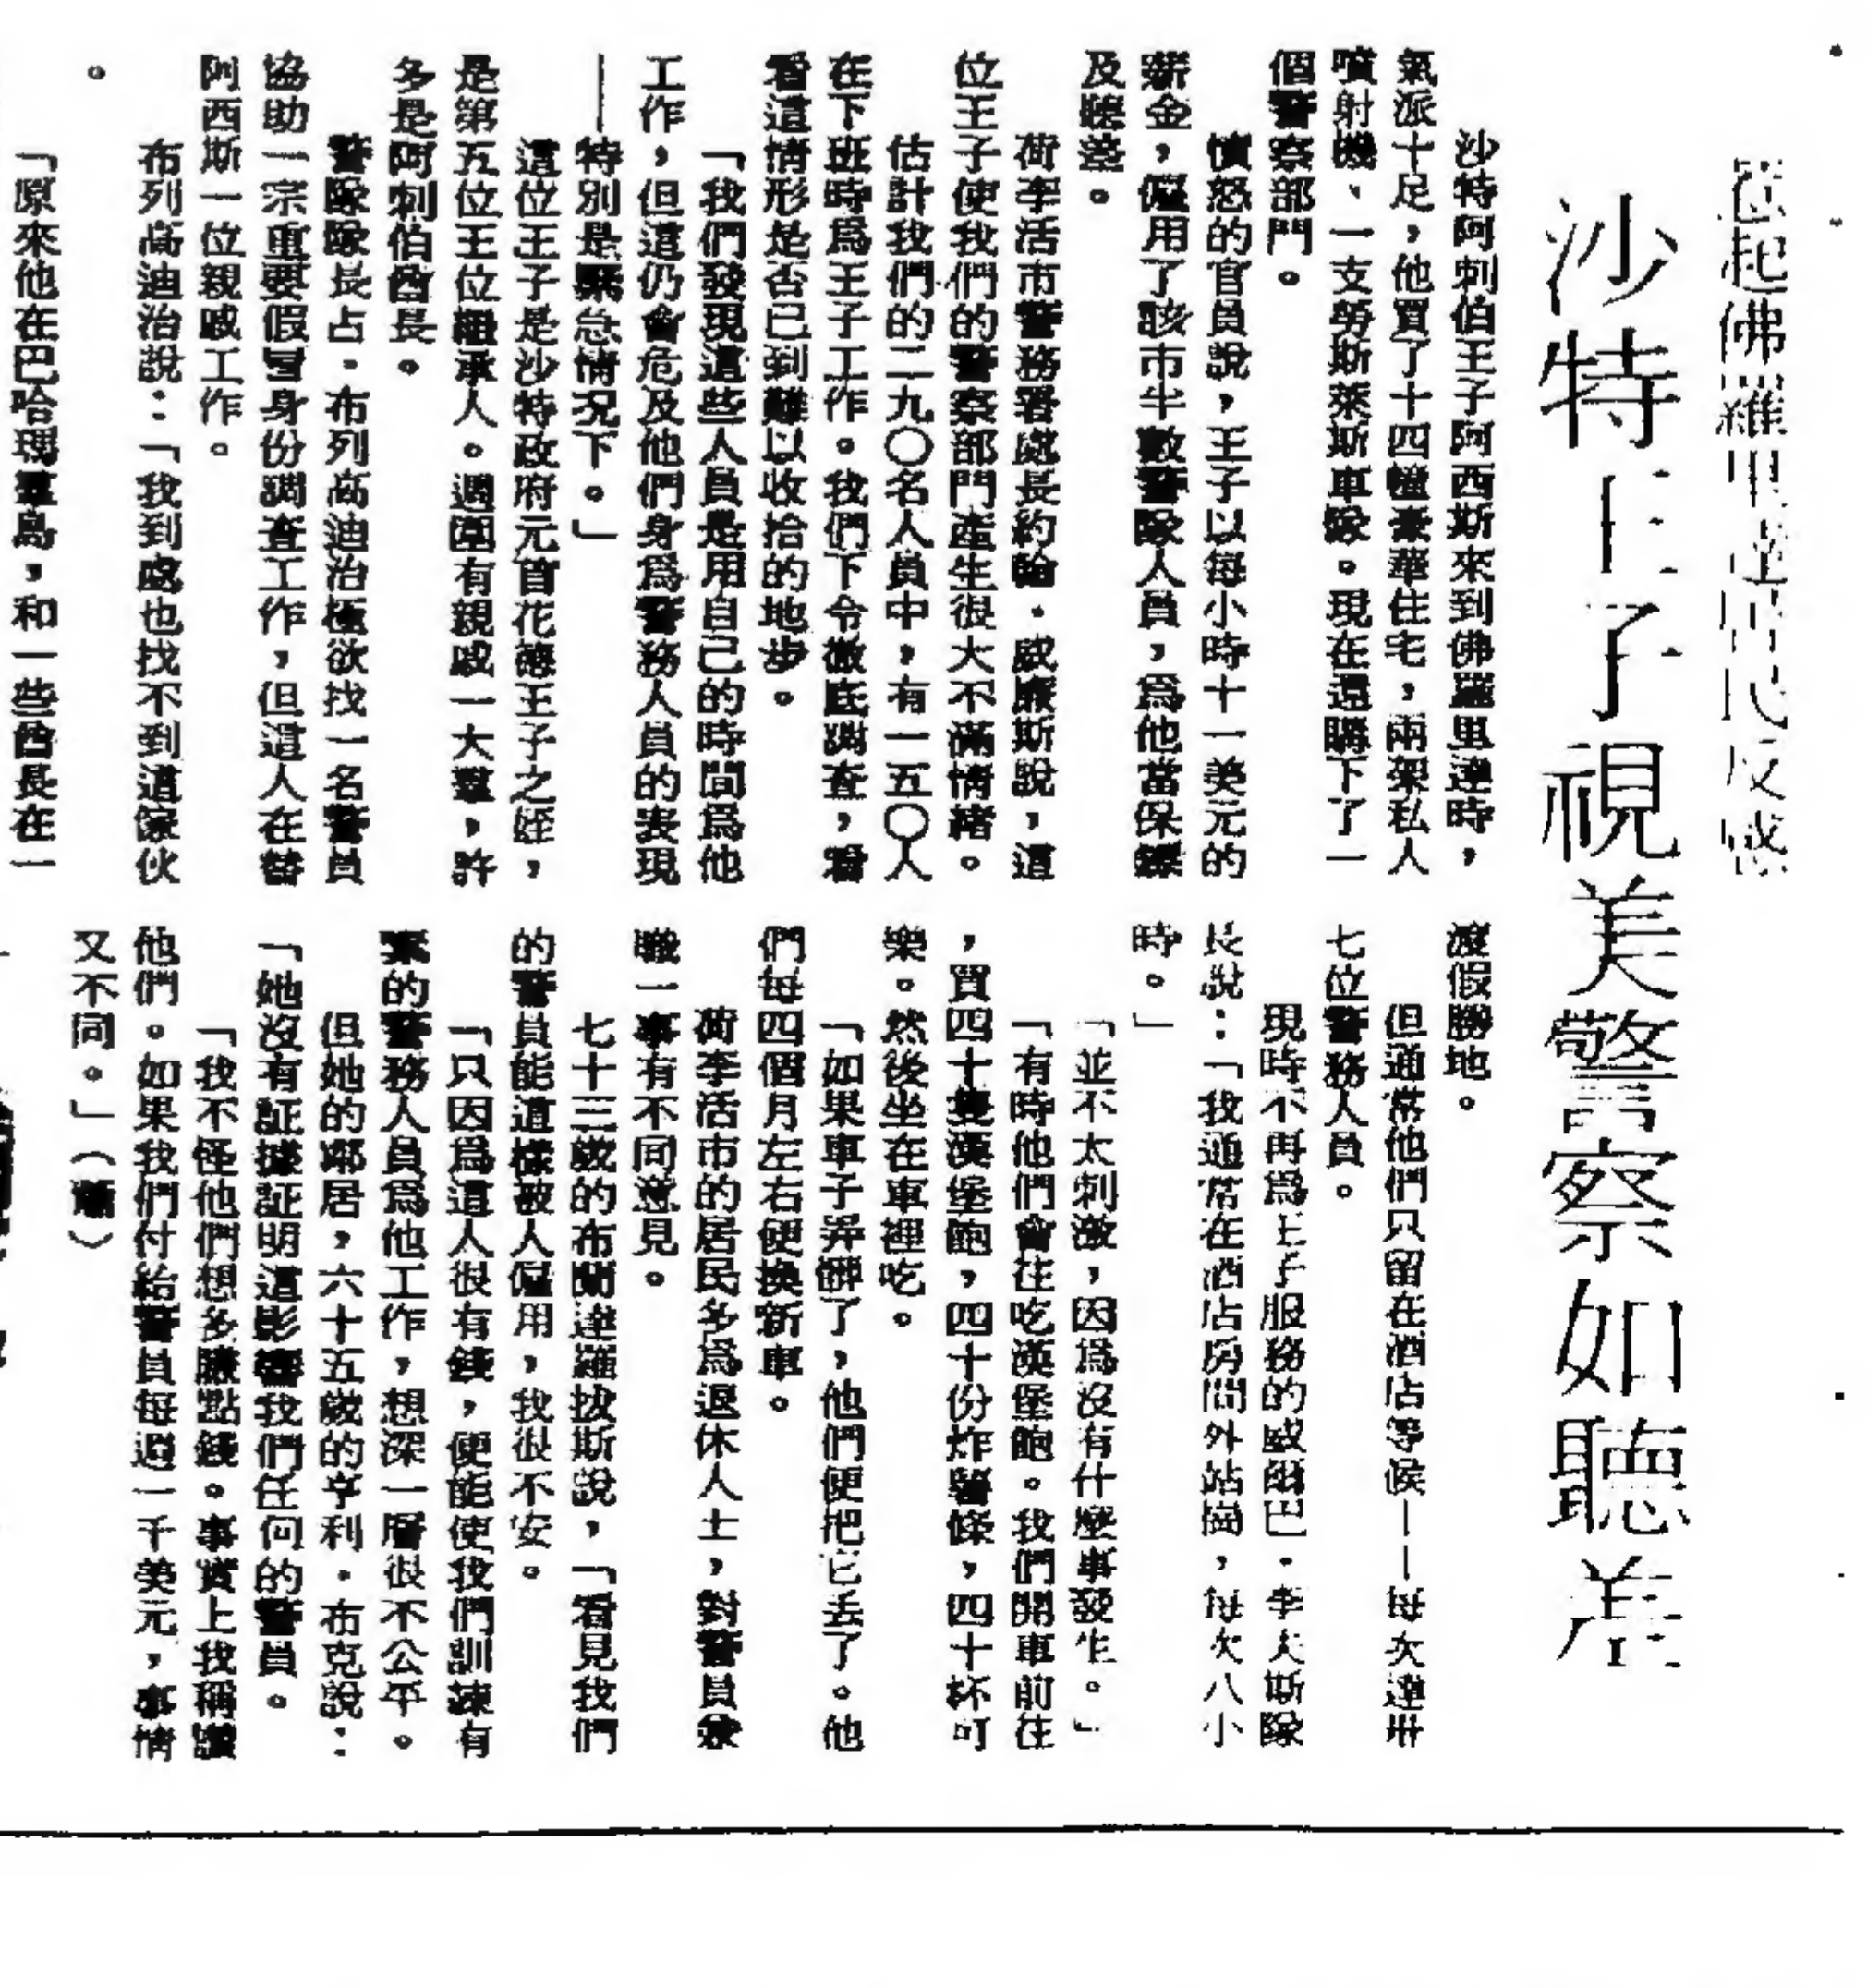 惹起佛羅里達居民反感
沙特王子視美警察如聽差
沙特阿刺伯王子阿西斯來到佛羅里達時，
氣派十足，他買了十四幢豪華住宅，兩架私人
噴射機、一支勞斯萊斯車隊。現在還購下了一
個警察部門。
憤怒的官員說，王子以每小時十一美元的
薪金，僱用了該市半數警隊人員，爲他當保鏢
及聽差。
荷李活市警務署處長約翰．威廉斯說，這
位王子使我們的警察部門產生很大不滿情緒。
估計我們的二九〇名人員中，有一五〇人
在下班時爲王子工作。我們下令徹底調查，看
看這情形是否已到難以收拾的地步。
「我們發現這些人員是用自己的時間爲他
工作，但這仍會危及他們身爲警務人員的表現
——特別是緊急情況下。」
這位王子是沙特政府元首花德王子之姪，
是第五位王位繼承人。週圍有親戚一大羣，許
多是阿刺伯酋長。
警隊隊長占．布列高迪治極欲找一名警員
協助一宗重要假冒身份調查工作，但這人在替
阿西斯一位親戚工作。
布列高迪治說：「我到處也找不到這傢伙
。
「原來他在巴哈瑪羣島，和一些酋長在一
渡假勝地。
但通常他們只留在酒店等候——每次達卅
七位警務人員。
現時不再爲王子服務的威爾巴．李夫斯隊
長說：「我通常在酒店房間外站崗，每次八小
時。」
「並不太刺激，因爲沒有什麼事發生。」
「有時他們會往吃漢堡飽。我們開車前往
，買四十隻漢堡飽，四十份炸薯條，四十杯可
樂。然後坐在車裡吃。
「如果車子弄髒了，他們便把它丟了。他
們每四個月左右便換新車。
荷李活市的居民多爲退休人士，對警員兼
職一事有不同意見。
七十三歲的布蘭達羅拔斯說，「看見我們
的警員能這樣被人僱用，我很不安。
「只因爲這人很有錢，便能使我們訓諫有
素的警務人員爲他工作，想深一層很不公平。
但她的鄰居，六十五歲的亨利．布克說：
「她沒有証據証明這影響我們任何的警員。
「我不怪他們想多賺點錢。事實上我稱讚
他們。如果我們付給警員每週一千美元，事情
又不同。」（ ）